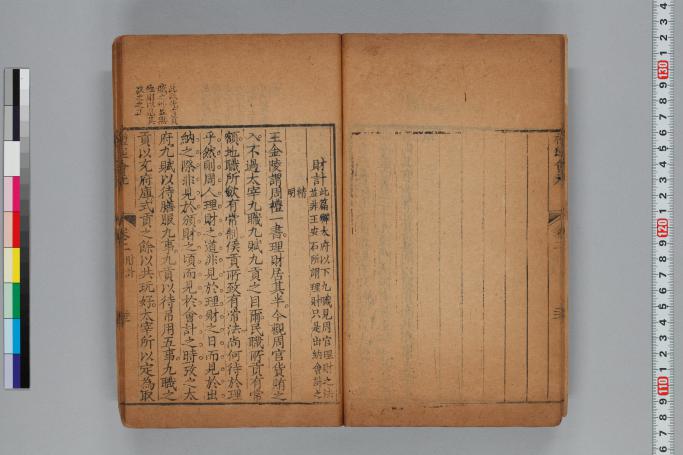 財計
此篇辯太府以下九職見周官理財之法
並非王安石所謂理財只是出納會計之
精
明
王金陵謂周禮一書理財居其半今觀周官貨賄之
入不過太宰九職九賦九貢之目爾民職所貢有常
額地職所斂有常制侯貢所致有常法尚何待於理
乎然則周人理財之道非見於理財之日而見於出
納之際非見於頒財之頃而見於會計之時攷之太
府九賦以待膳服九事九貢以待弔用五事九職之
貢以充府庫式貢之餘以共玩好太宰所以定為取
卷二
財計